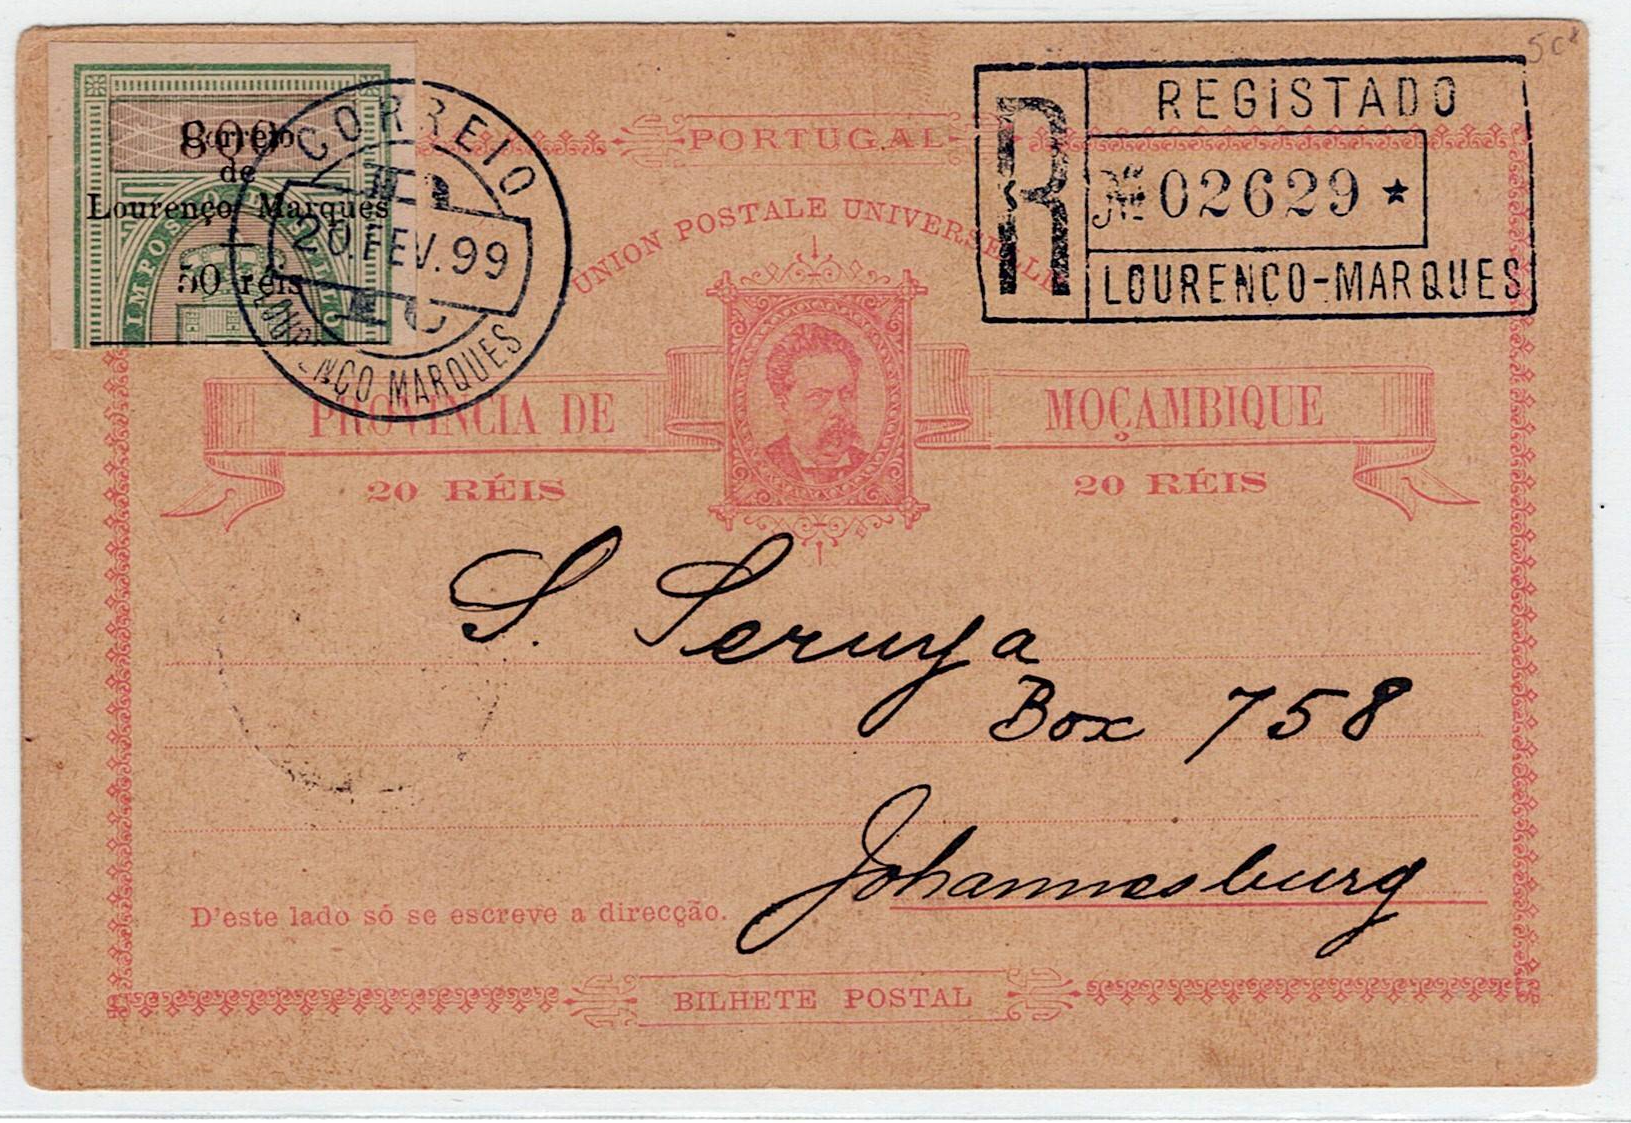 5c
REGISTADO
R
№ 02629 ★
LOURENCO-MARQUES
800
Correio
de
Lourenço Marques
50 réis
IMPOSTO
CORREIO
20.FEV.99
LOURENÇO MARQUES
PORTUGAL
UNION POSTALE UNIVERSELLE
PROVINCIA DE MOÇAMBIQUE
20 RÉIS 20 RÉIS
S. Seruya
Box 758
Johannesburg
D'este lado só se escreve a direcção.
BILHETE POSTAL